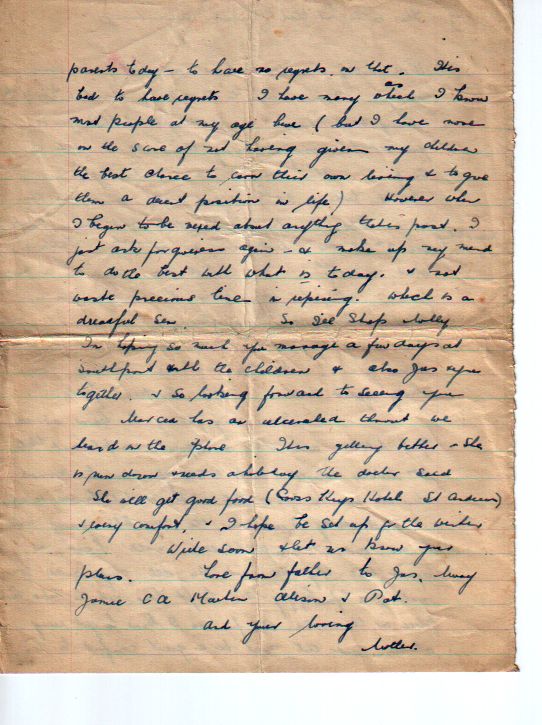 parents today – to have no regrets on that. It is
bad to have regrets I have many which I know
most people at my age have (but I have none
on the score of not having given my children
the best chance to earn their own living & to give
them a decent position in life) However when
I begin to be vexed about anything that is past, I
just ask forgiveness again – & make up my mind
to do the best with what is today. & not
waste precious time in repining. Which is a
dreadful sin. So I'll stop
I'm hoping so much you manage a few days at
Southport with the children & also Jas & you
together. & so looking forward to seeing you
has an ulcerated throat we
heard on the phone It is getting better – She
is run down & needs a holiday the doctor said
She will get good food (Cross Keys Hotel St Andrews)
& every comfort, & I hope be set up for the winter
Write soon & let us know your
plans. Love from father to Jas,
Jamie Martin Alison & Pat.
and your loving
Mother.